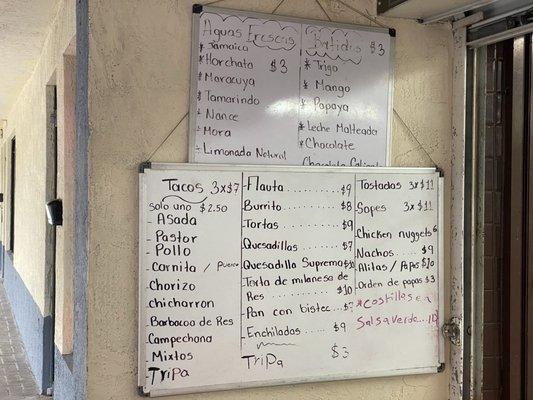 Aguas Frescas
* Jamaica
* Horchata $3
* Maracuya
* Tamarindo
- Nance
- Mora
- Limonada Natural
Batidos $3
* Trigo
* Mango
- Papaya
* Leche Malteada
* Chocolate
Chocolate
Tacos 3x$7
solo uno $2.50
- Asada
- Pastor
- Pollo
- Carnita / Puerco
- Chorizo
- chicharron
- Barbacoa de Res
- Campechana
- Mixtos
- Tripa
- Flauta ........ $9
- Burrito ........ $8
- Tortas ........ $9
- Quesadillas ..... $7
- Quesadilla Suprema $10
- Torta de milanesa de
Res ........ $10
- Pan con bistec ... $7
- Enchiladas ..... $9
Tripa $3
Tostadas 3x$11
Sopes 3x$11
Chicken nuggets 6
Nachos ..... $9
Alitas / Papas $10
Orden de papas $3
* Costilles en
Salsa verde ... 10